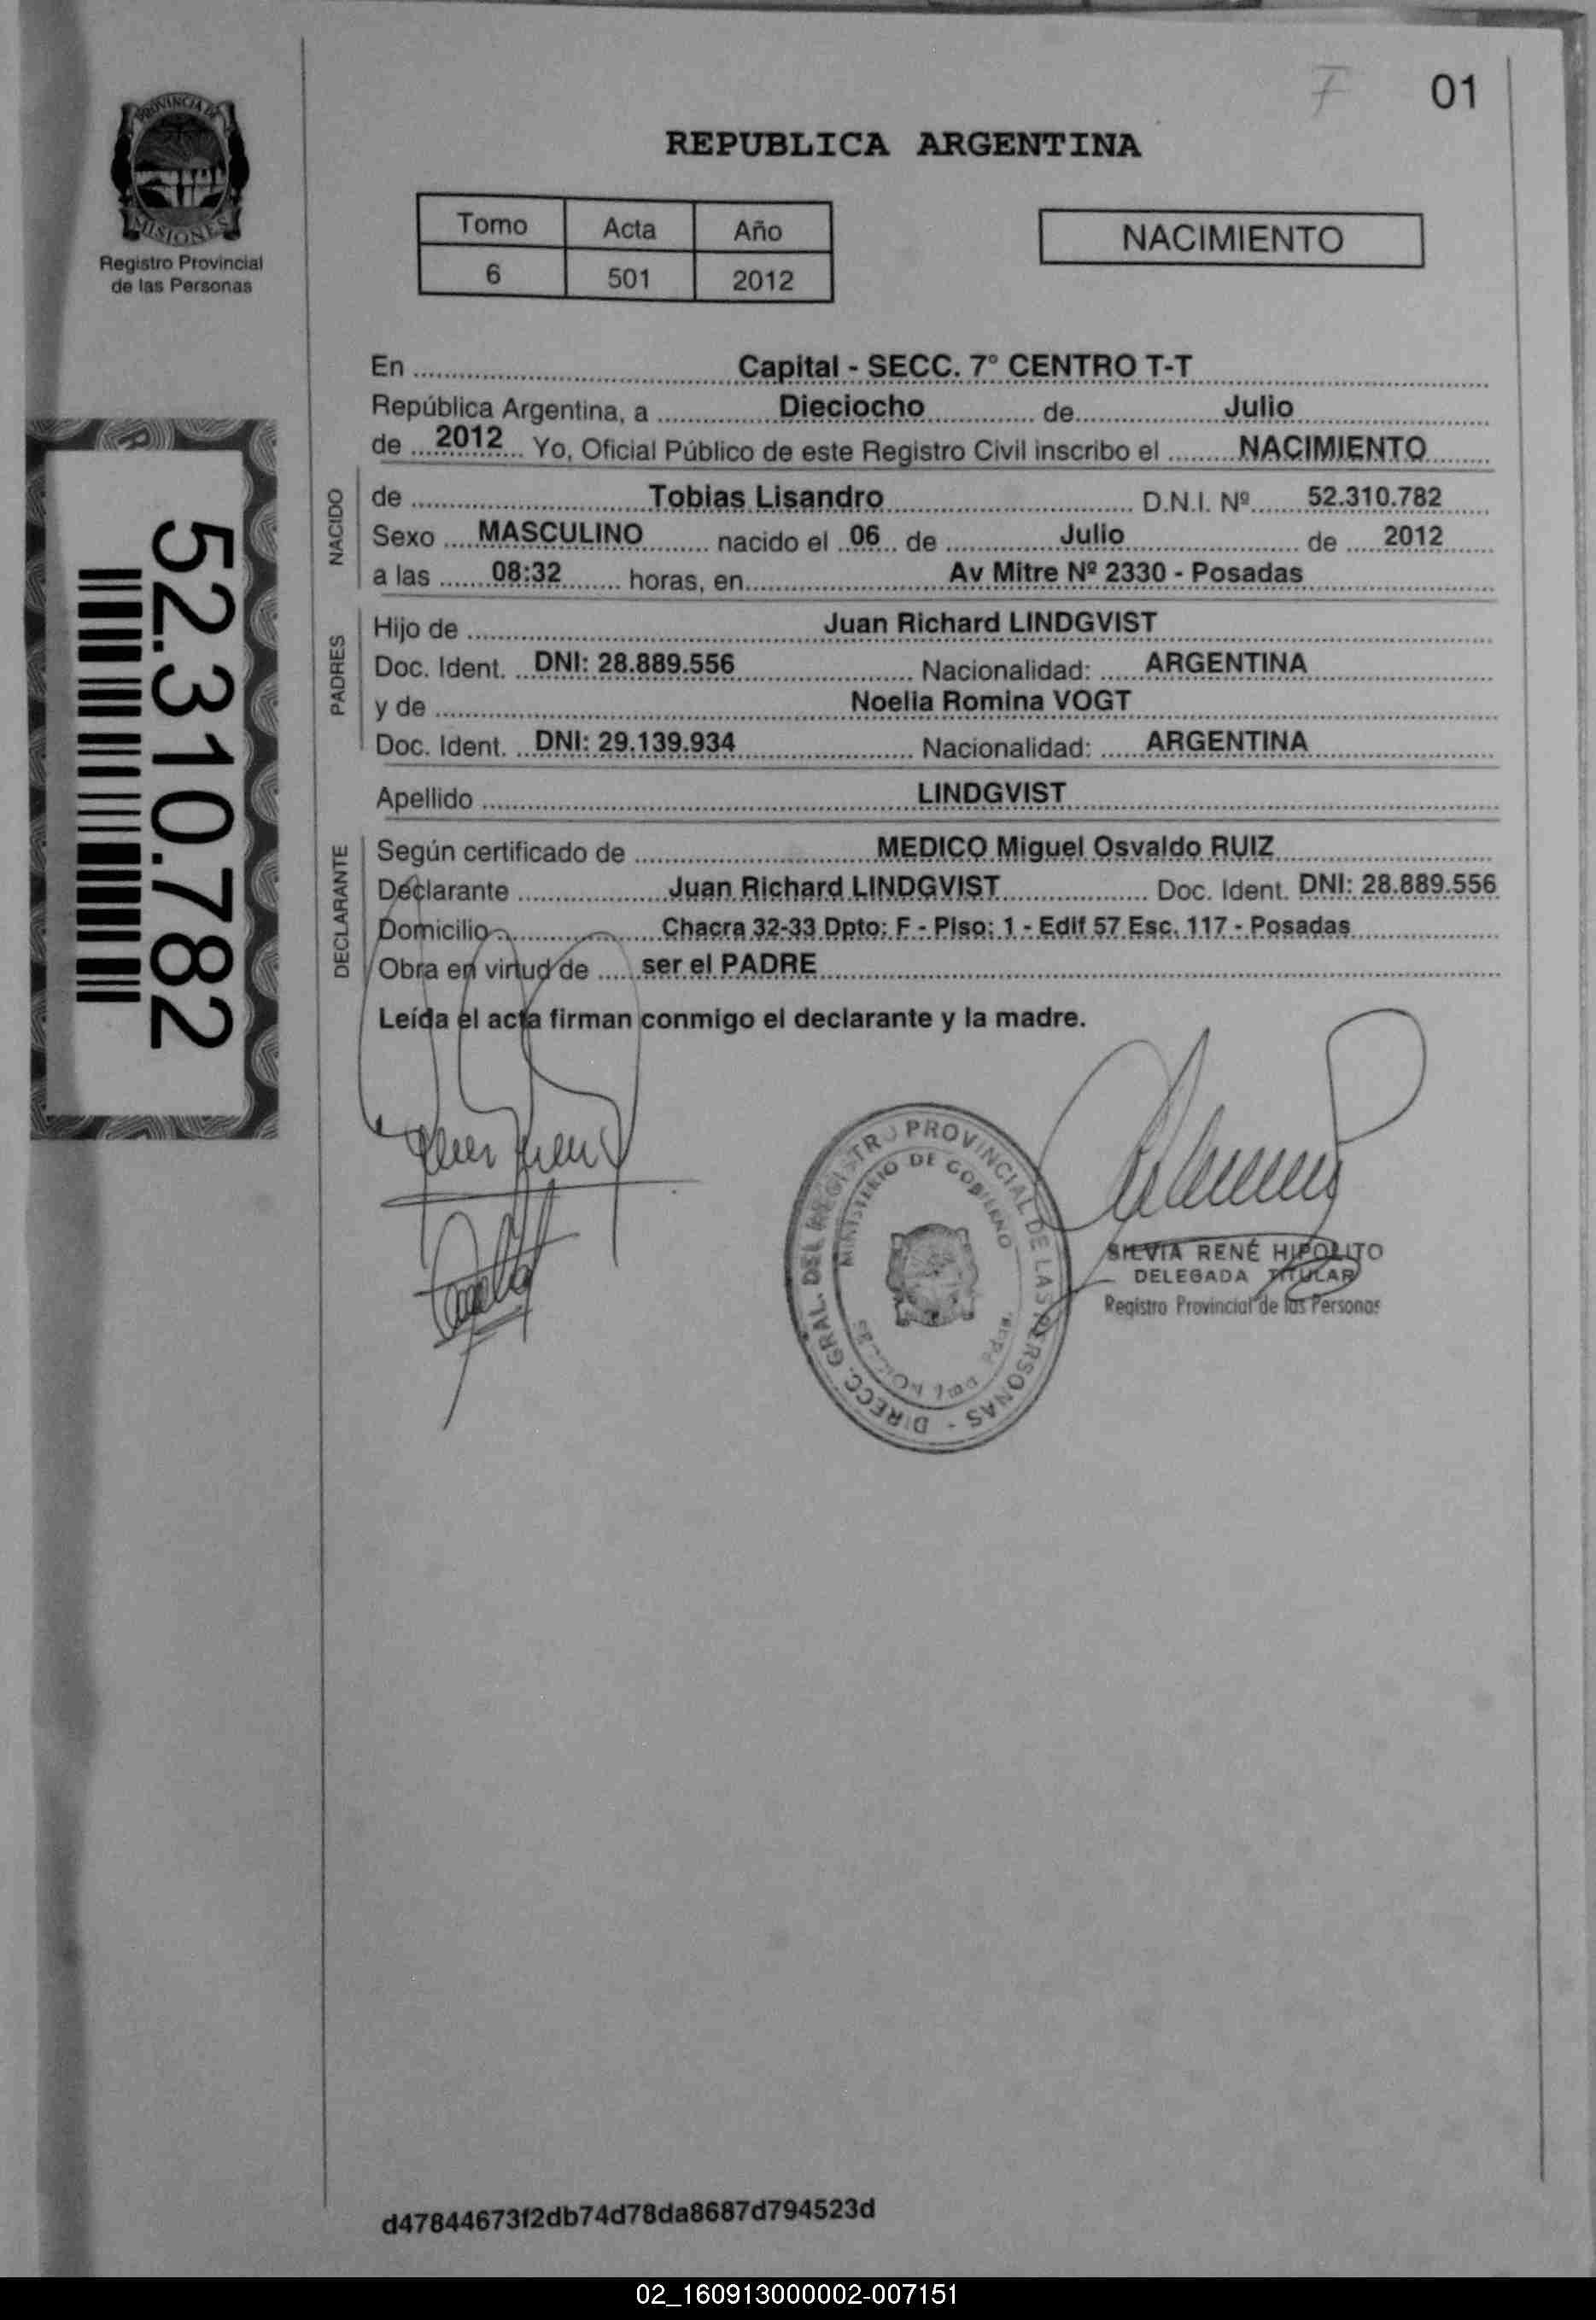 PROVINCIA DE
MISIONES
Registro Provincial
de las Personas
7 01
REPUBLICA ARGENTINA
Tomo Acta Año
6 501 2012
NACIMIENTO
En Capital - SECC. 7° CENTRO T-T
República Argentina, a Dieciocho de Julio
de 2012 Yo, Oficial Público de este Registro Civil inscribo el NACIMIENTO
NACIDO
de Tobias Lisandro D.N.I. Nº 52.310.782
Sexo MASCULINO nacido el 06 de Julio de 2012
a las 08:32 horas, en Av Mitre Nº 2330 - Posadas
PADRES
Hijo de Juan Richard LINDGVIST
Doc. Ident. DNI: 28.889.556 Nacionalidad: ARGENTINA
y de Noelia Romina VOGT
Doc. Ident. DNI: 29.139.934 Nacionalidad: ARGENTINA
Apellido LINDGVIST
DECLARANTE
Según certificado de MEDICO Miguel Osvaldo RUIZ
Declarante Juan Richard LINDGVIST Doc. Ident. DNI: 28.889.556
Domicilio Chacra 32-33 Dpto: F - Piso: 1 - Edif 57 Esc. 117 - Posadas
Obra en virtud de ser el PADRE
Leída el acta firman conmigo el declarante y la madre.
52.310.782
DIRECC. GRAL. DEL REGISTRO PROVINCIAL DE LAS PERSONAS -
MINISTERIO DE GOBIERNO
SILVIA RENÉ HIPOLITO
DELEGADA TITULAR
Registro Provincial de las Personas
d47844673f2db74d78da8687d794523d
02_160913000002-007151